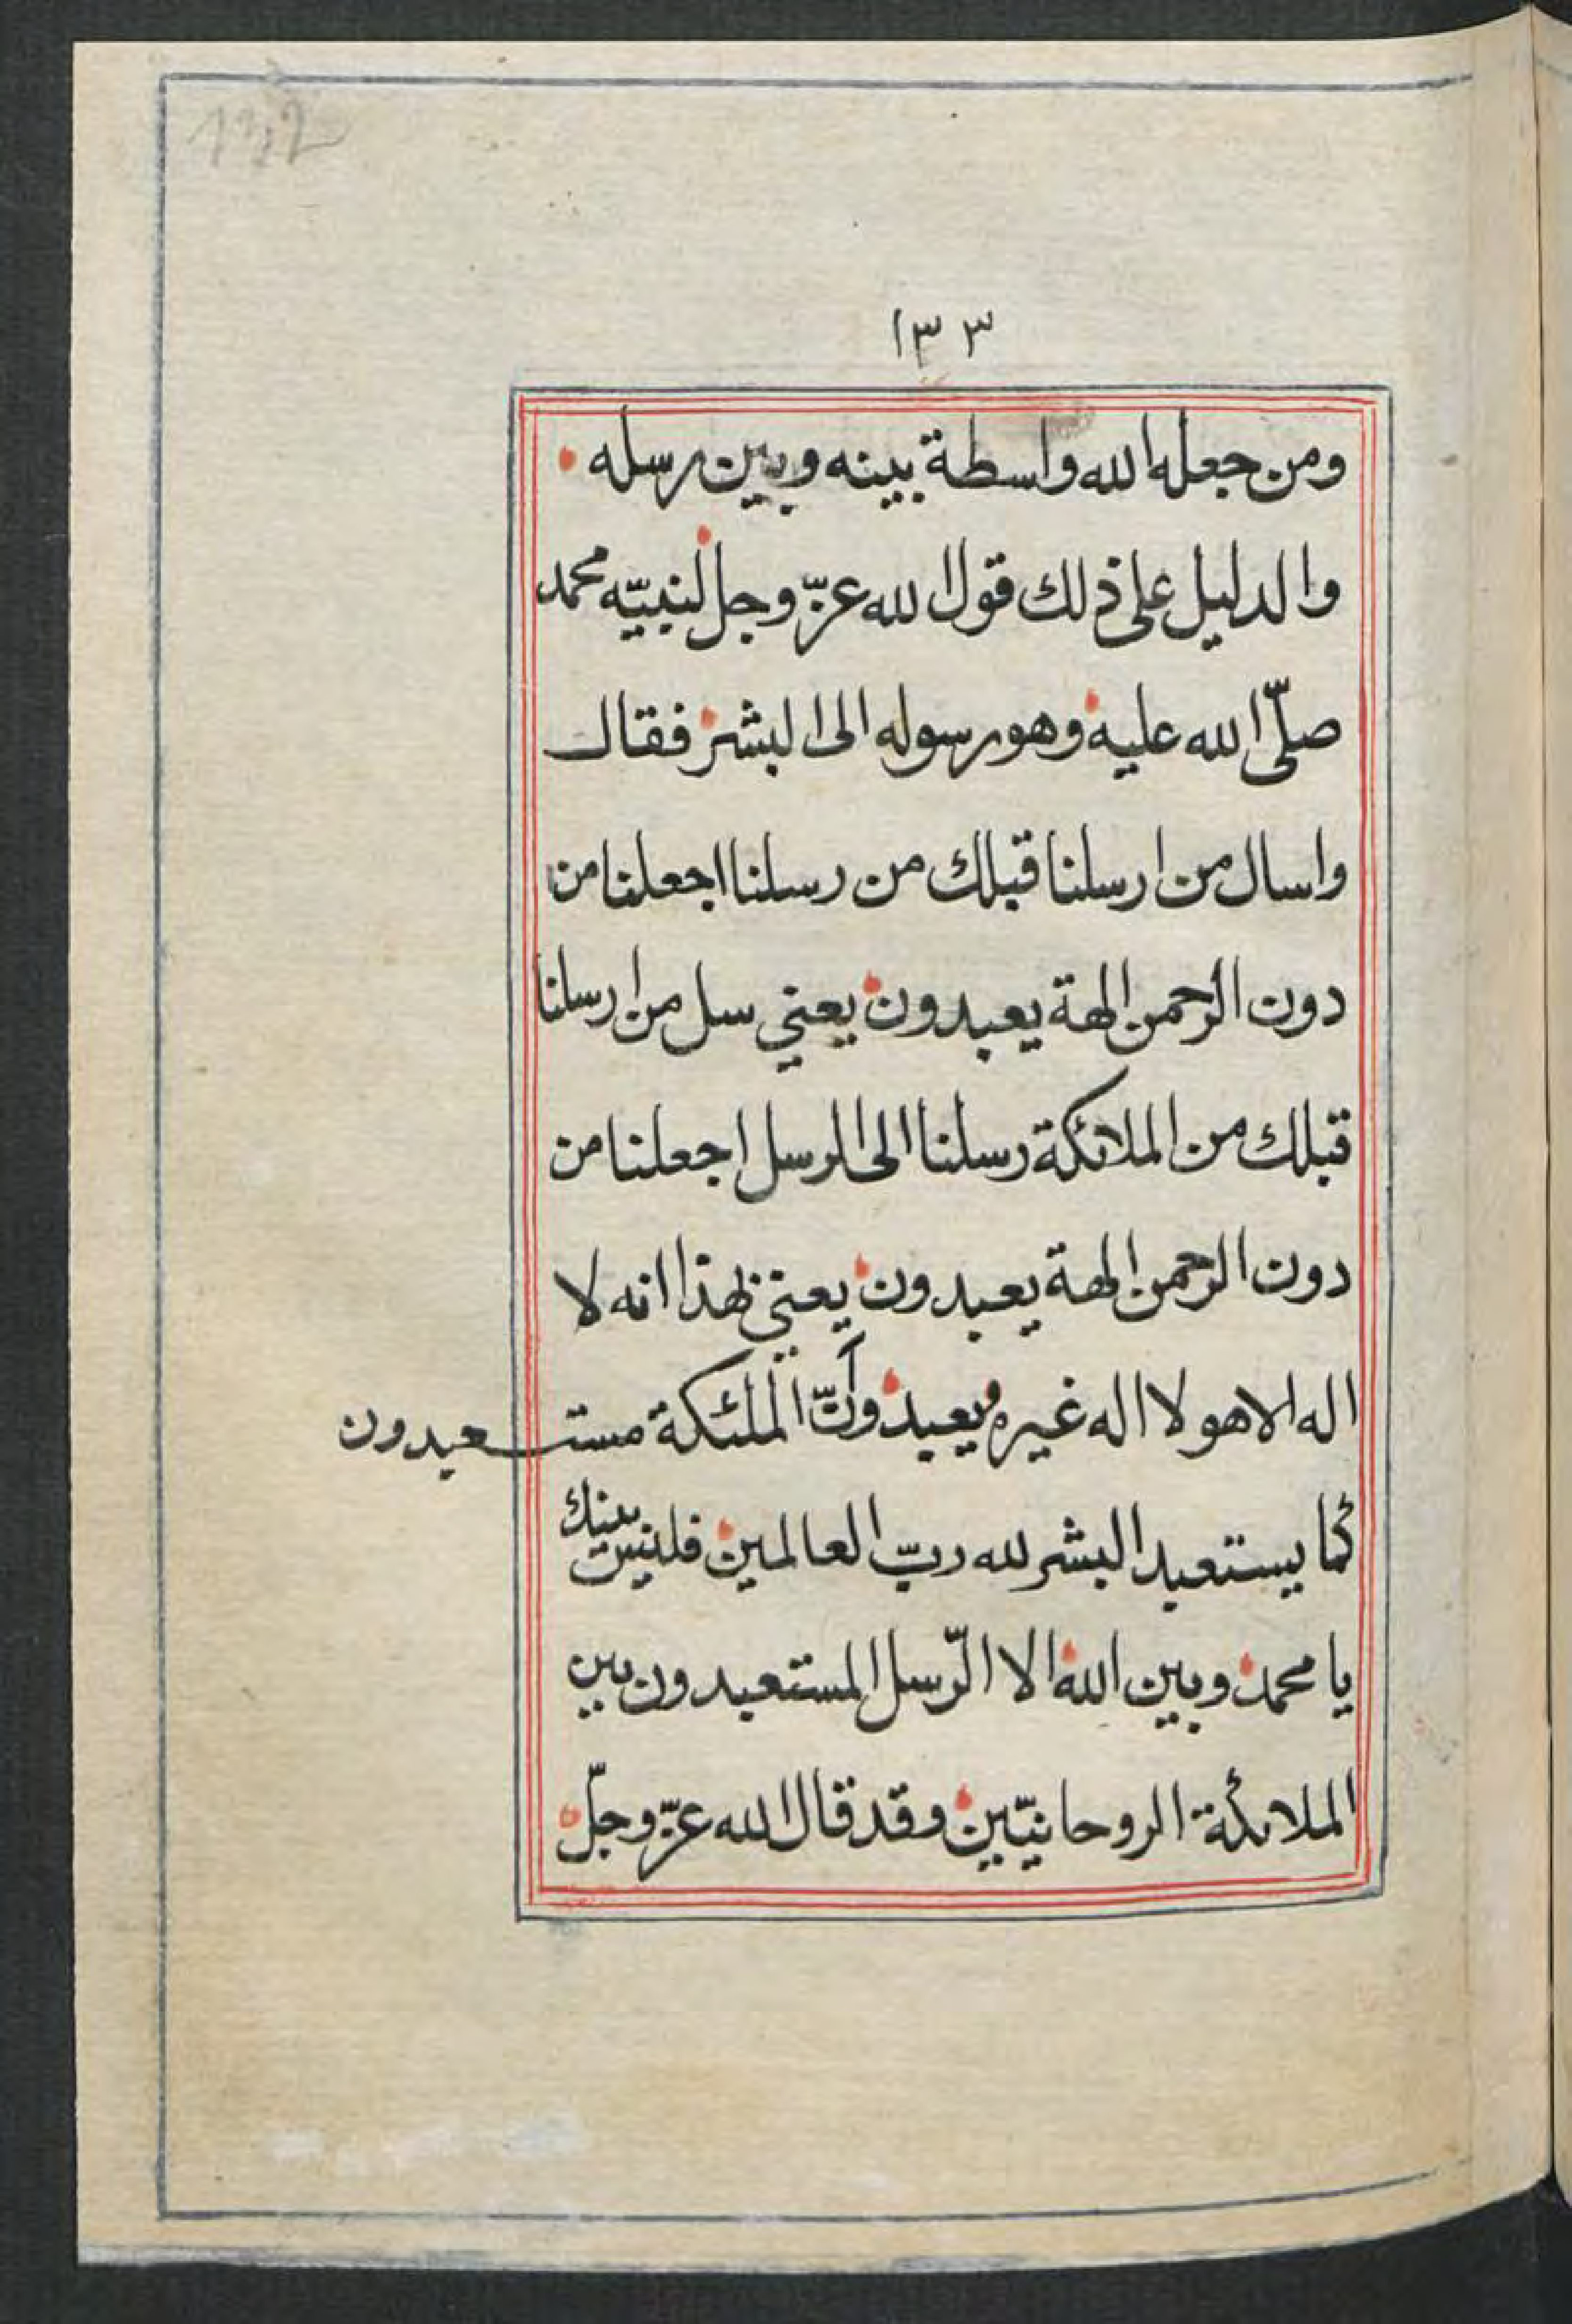 132
١٣٣
ومن جعله الله واسطة بينه وبين رسله
والدليل على ذلك قول الله عزّ وجل لنبيّه محمد
صلّى الله عليه وهو رسوله الى البشر فقال
واسال من ارسلنا قبلك من رسلنا اجعلنا من
دون الرحمن الهة يعبدون يعني سل من ارسلنا
قبلك من الملائكة رسلنا الى الرسل اجعلنا من
دون الرحمن الهة يعبدون يعني بهذا انه لا
اله الا هو ولا اله غيره يعبد وأنّ الملئكة مستعبدون
كما يستعبد البشر لله ربّ العالمين فليس بينك
يا محمد وبين الله الا الرّسل المستعبدون بين
الملائكة الروحانيّين وقد قال الله عزّ وجلّ